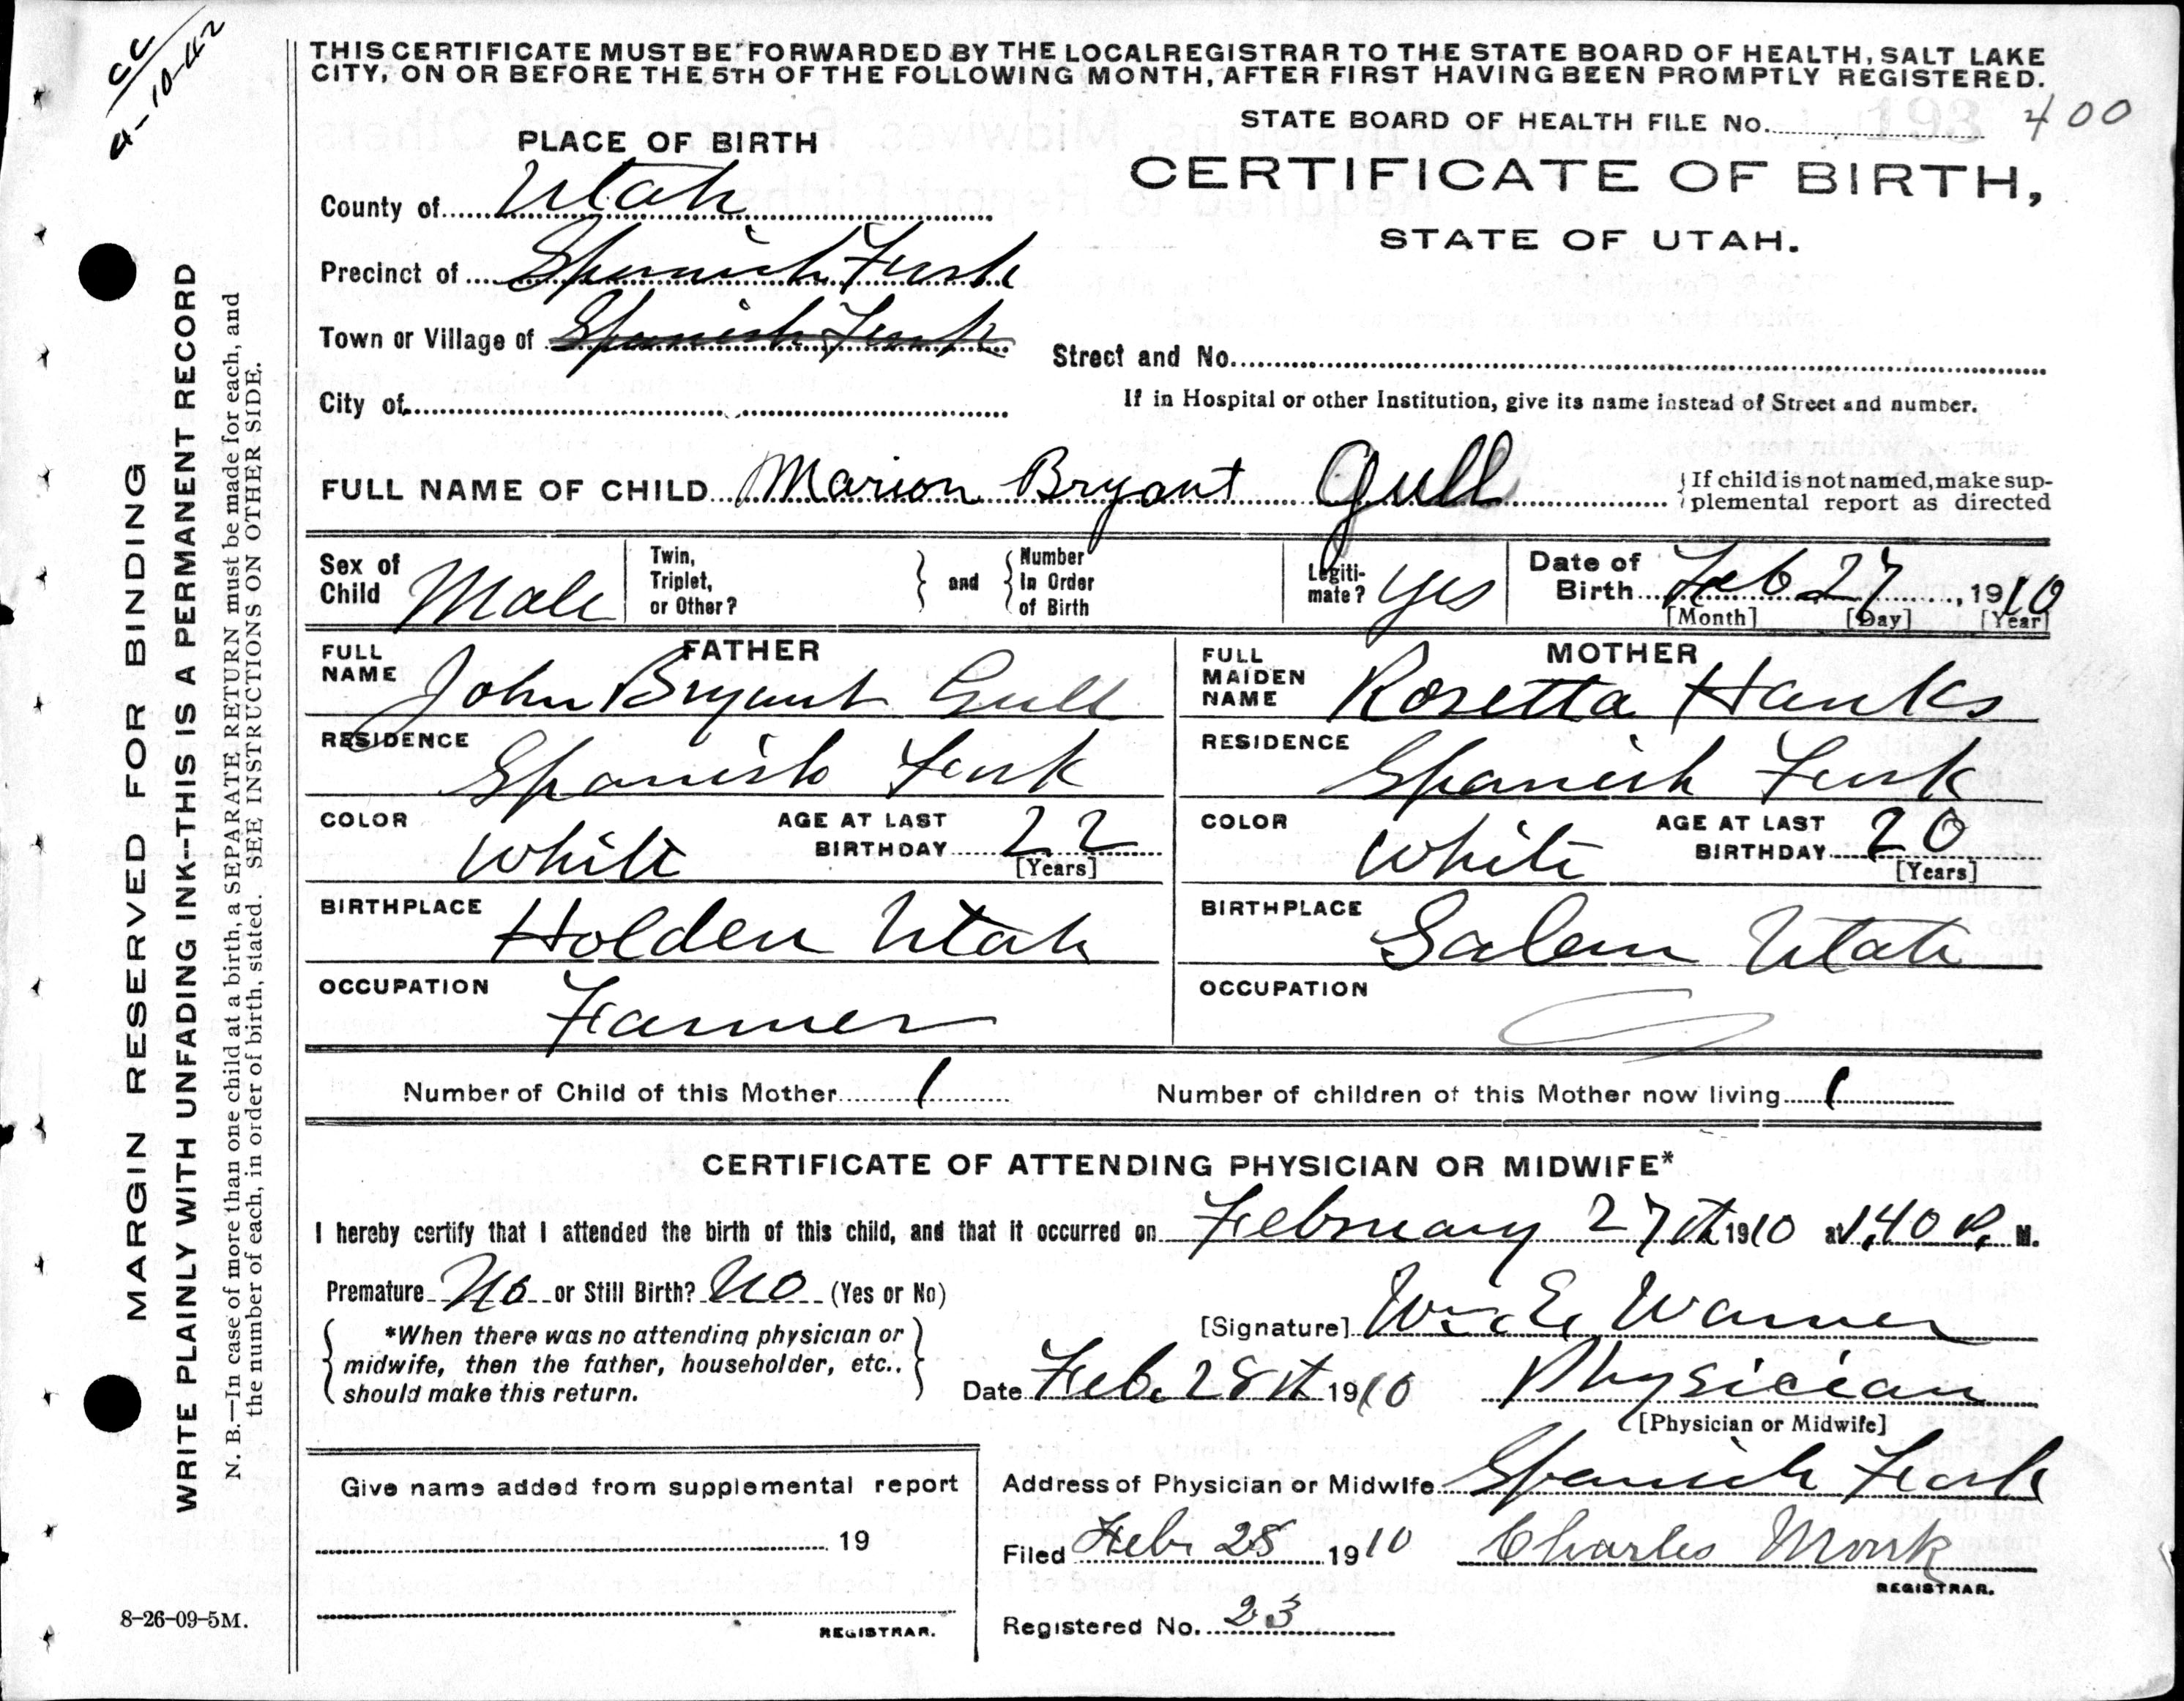 cc
4-10-42
THIS CERTIFICATE MUST BE FORWARDED BY THE LOCAL REGISTRAR TO THE STATE BOARD OF HEALTH, SALT LAKE
CITY, ON OR BEFORE THE 5TH OF THE FOLLOWING MONTH, AFTER FIRST HAVING BEEN PROMPTLY REGISTERED.
STATE BOARD OF HEALTH FILE No. 193 400
PLACE OF BIRTH
CERTIFICATE OF BIRTH,
STATE OF UTAH.
County of Utah
Precinct of Spanish Fork
Town or Village of Spanish Fork
Street and No.
City of
If in Hospital or other Institution, give its name instead of Street and number.
FULL NAME OF CHILD Marion Bryant Gull {If child is not named, make sup-
plemental report as directed
Sex of Child Male
Twin, Triplet, or Other? } and { Number In Order of Birth
Legiti-mate? yes
Date of Birth Feb 27, 1910
[Month] [Day] [Year]
FATHER
FULL NAME John Bryant Gull
MOTHER
FULL MAIDEN NAME Rosetta Hanks
RESIDENCE Spanish Fork
RESIDENCE Spanish Fork
COLOR White AGE AT LAST BIRTHDAY 22 [Years]
COLOR White AGE AT LAST BIRTHDAY 20 [Years]
BIRTHPLACE Holden Utah
BIRTHPLACE Salem Utah
OCCUPATION Farmer
OCCUPATION
Number of Child of this Mother 1 Number of children of this Mother now living 1
CERTIFICATE OF ATTENDING PHYSICIAN OR MIDWIFE*
I hereby certify that I attended the birth of this child, and that it occurred on February 27th 1910 at 1.40 P. M.
Premature No or Still Birth? No (Yes or No)
*When there was no attending physician or
midwife, then the father, householder, etc.,
should make this return.
[Signature] Wm. E. Warner
Date Feb. 28th 1910 Physician
[Physician or Midwife]
Give name added from supplemental report
19
REGISTRAR.
Address of Physician or Midwife Spanish Fork
Filed Feb. 28 1910 Charles Monk
REGISTRAR.
Registered No. 23
8-26-09-5M.
MARGIN RESERVED FOR BINDING
WRITE PLAINLY WITH UNFADING INK--THIS IS A PERMANENT RECORD
N. B.—In case of more than one child at a birth, a SEPARATE RETURN must be made for each, and
the number of each, in order of birth, stated. SEE INSTRUCTIONS ON OTHER SIDE.